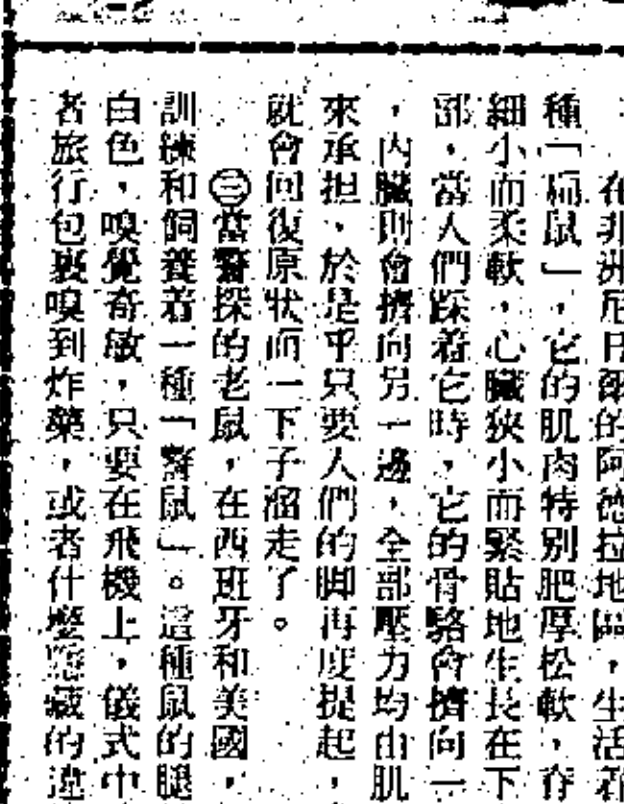 在非洲尼日爾的阿德拉地區，生活着
種「扁鼠」，它的肌肉特別肥厚松軟，脊
細小而柔軟，心臟狹小而緊貼地生長在下
部，當人們踩着它時，它的骨骼會擠向一
，內臟則會擠向另一邊，全部壓力均由肌
來承担，於是乎只要人們的脚再度提起，
就會回復原狀而一下子溜走了。
㊂當警探的老鼠，在西班牙和美國，
訓練和飼養着一種「警鼠」。這種鼠的腿
白色，嗅覺奇敏，只要在飛機上，儀式中
者旅行包裹嗅到炸藥，或者什麼隱藏的違